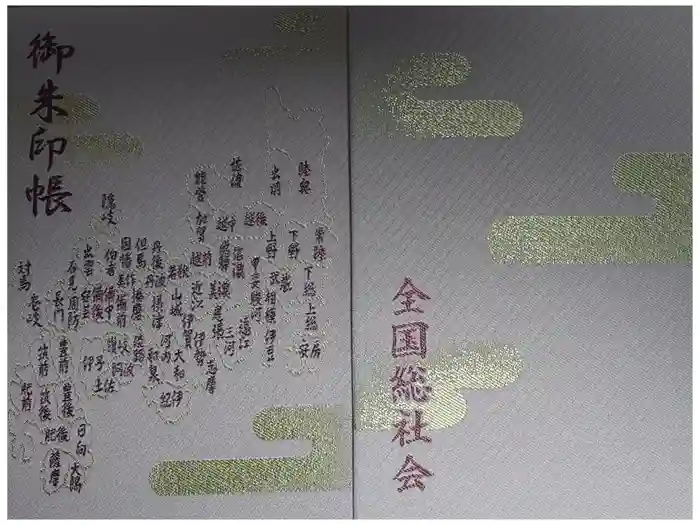 御朱印帳
陸奥
出羽
佐渡
能登
隠岐
対馬
壱岐
常陸
下野
上野
越後
越中
加賀
越前
飛騨
信濃
下総
上総
安房
武蔵
相模
伊豆
甲斐
駿河
遠江
三河
尾張
美濃
近江
若狭
丹後
丹波
山城
伊賀
伊勢
志摩
大和
紀伊
河内
和泉
摂津
但馬
播磨
淡路
因幡
美作
備前
伯耆
備中
出雲
備後
石見
安芸
周防
長門
讃岐
阿波
土佐
伊予
豊前
豊後
筑前
筑後
肥前
肥後
日向
大隅
薩摩
全国総社会